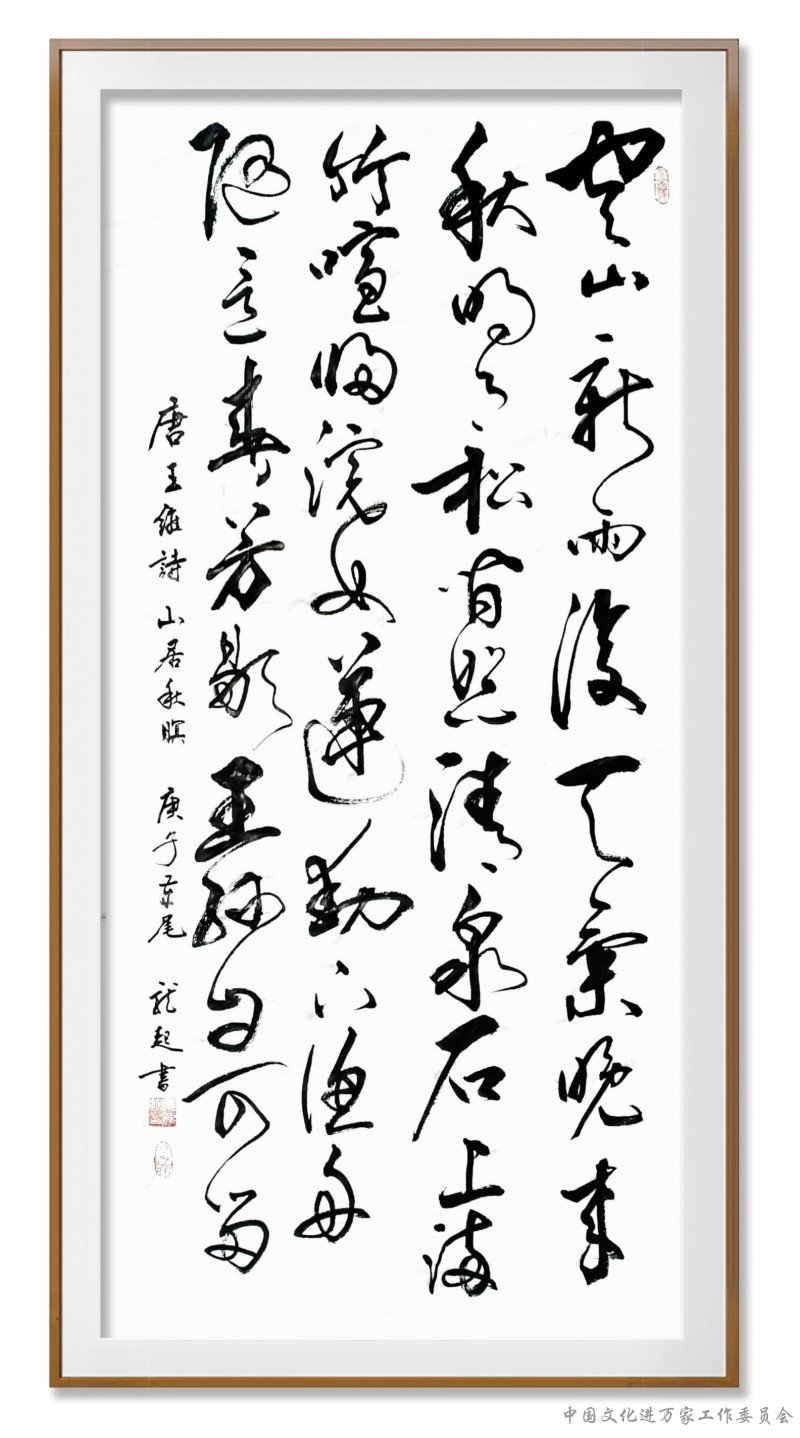 空山新雨後天氣晚來
秋明月松間照清泉石上流
竹喧歸浣女蓮動下漁舟
随意春芳歇王孫自可留
唐王維詩 山居秋暝 庚子歲尾 龍起書
中国文化进万家工作委员会